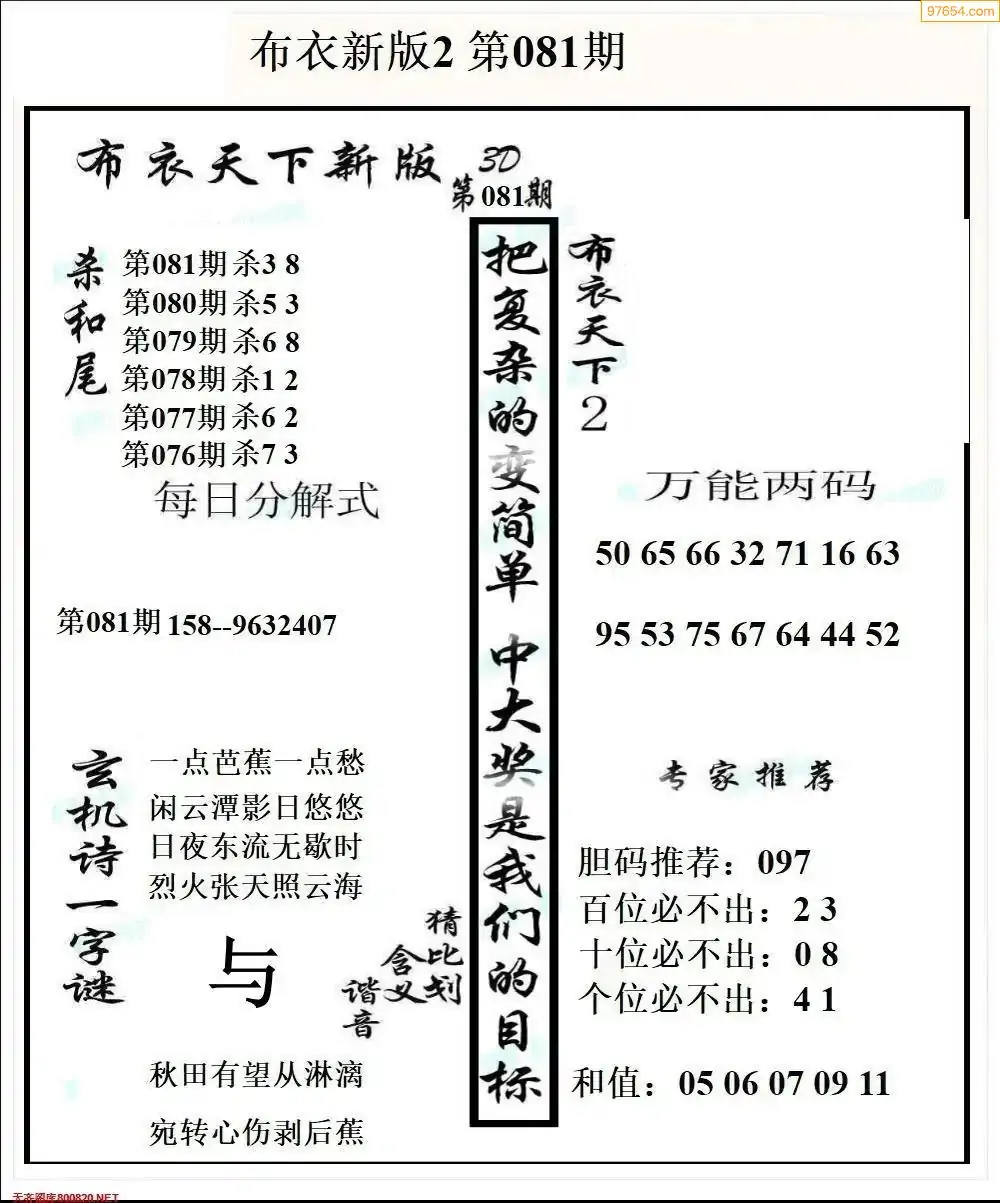 97654.com
布衣新版2 第081期
布衣天下新版 3D
第081期
杀和尾
第081期 杀3 8
第080期 杀5 3
第079期 杀6 8
第078期 杀1 2
第077期 杀6 2
第076期 杀7 3
每日分解式
第081期 158--9632407
玄机诗一字谜
一点芭蕉一点愁
闲云潭影日悠悠
日夜东流无歇时
烈火张天照云海
与
猜比划
含义
谐音
秋田有望从淋漓
宛转心伤剥后蕉
把复杂的变简单 中大奖是我们的目标
布衣天下2
万能两码
50 65 66 32 71 16 63
95 53 75 67 64 44 52
专家推荐
胆码推荐：097
百位必不出：2 3
十位必不出：0 8
个位必不出：4 1
和值：05 06 07 09 11
天齐图库800820.NET